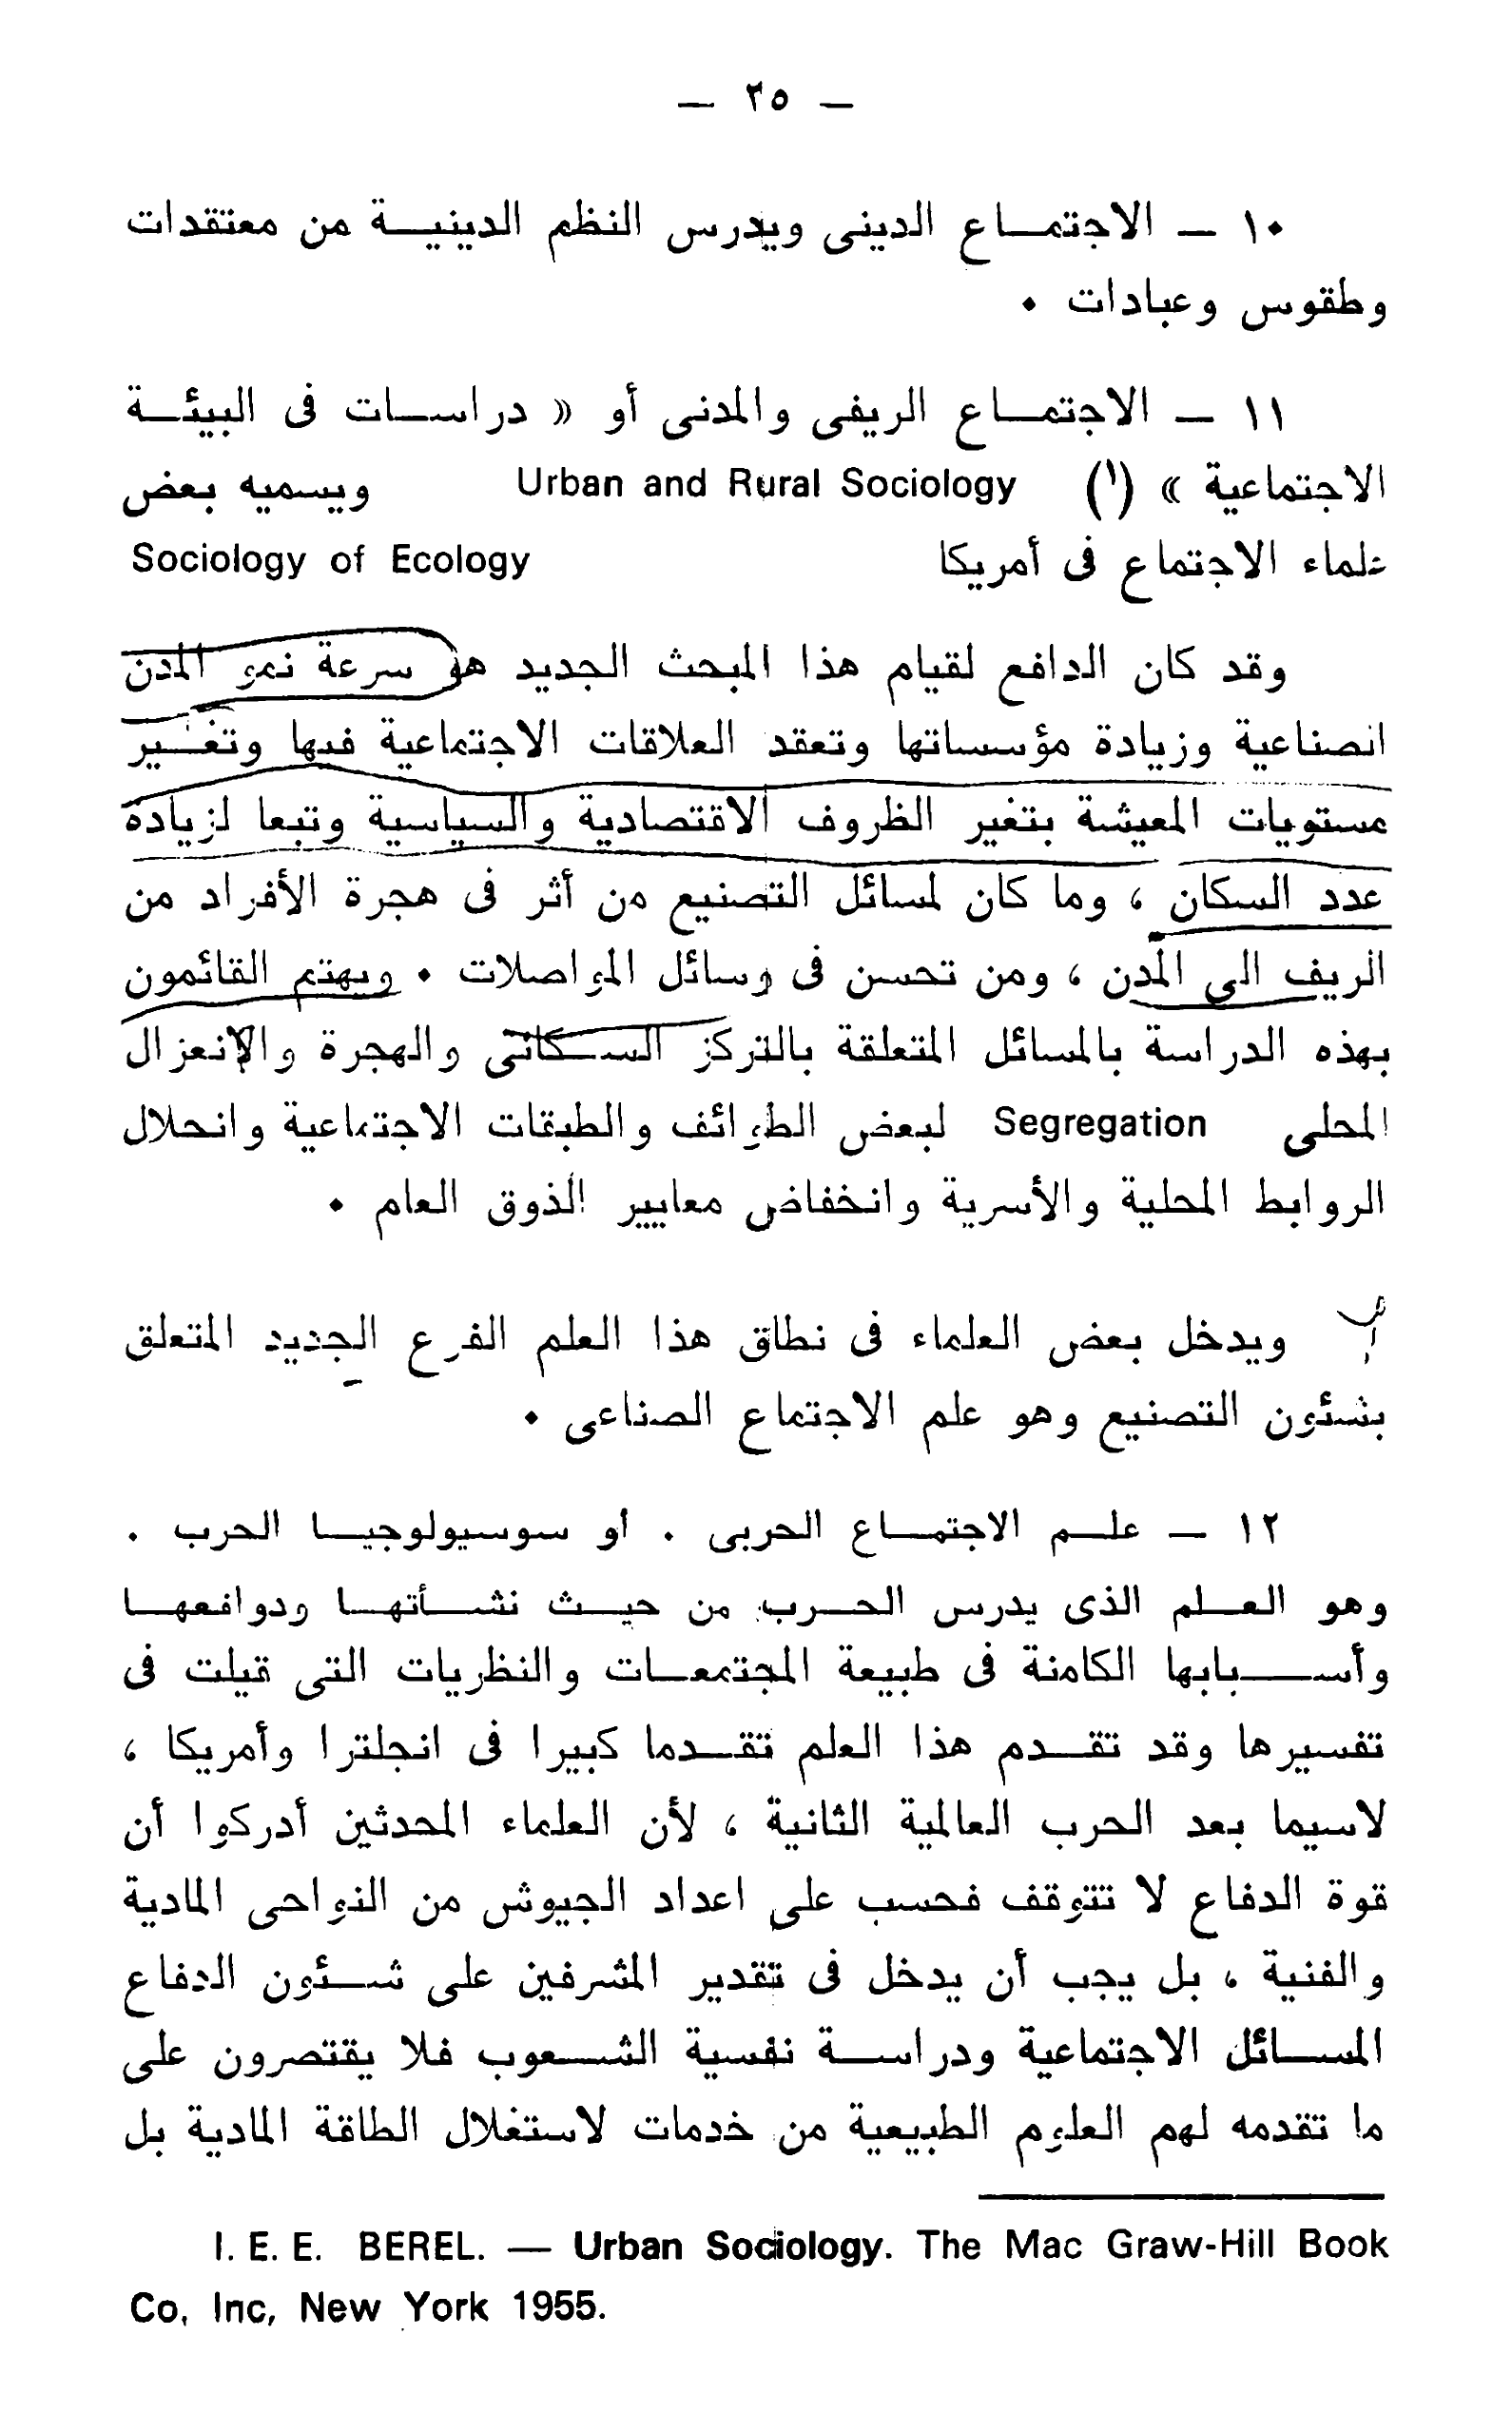 — ٢٥ —
١٠ — الاجتماع الدينى ويدرس النظم الدينية من معتقدات
وطقوس وعبادات •
١١ — الاجتماع الريفى والمدنى أو « دراسات فى البيئة
الاجتماعية » (١) Urban and Rural Sociology ويسميه بعض
علماء الاجتماع فى أمريكا Sociology of Ecology
وقد كان الدافع لقيام هذا المبحث الجديد هو سرعة نمو المدن
الصناعية وزيادة مؤسساتها وتعقد العلاقات الاجتماعية فيها وتغير
مستويات المعيشة بتغير الظروف الاقتصادية والسياسية وتبعا لزيادة
عدد السكان ، وما كان لمسائل التصنيع من أثر فى هجرة الأفراد من
الريف الى المدن ، ومن تحسن فى وسائل المواصلات • ويهتم القائمون
بهذه الدراسة بالمسائل المتعلقة بالتركز السكانى والهجرة والانعزال
المحلى Segregation لبعض الطوائف والطبقات الاجتماعية وانحلال
الروابط المحلية والأسرية وانخفاض معايير الذوق العام •
ويدخل بعض العلماء فى نطاق هذا العلم الفرع الجديد المتعلق
بشئون التصنيع وهو علم الاجتماع الصناعى •
١٢ — علم الاجتماع الحربى . او سوسيولوجيا الحرب .
وهو العلم الذى يدرس الحرب من حيث نشأتها ودوافعها
وأسبابها الكامنة فى طبيعة المجتمعات والنظريات التى قيلت فى
تفسيرها وقد تقدم هذا العلم تقدما كبيرا فى انجلترا وأمريكا ،
لاسيما بعد الحرب العالمية الثانية ، لأن العلماء المحدثين أدركوا أن
قوة الدفاع لا تتوقف فحسب على اعداد الجيوش من النواحى المادية
والفنية ، بل يجب أن يدخل فى تقدير المشرفين على شئون الدفاع
المسائل الاجتماعية ودراسة نفسية الشعوب فلا يقتصرون على
ما تقدمه لهم العلوم الطبيعية من خدمات لاستغلال الطاقة المادية بل
I. E. E. BEREL. — Urban Sociology. The Mac Graw-Hill Book
Co, Inc, New York 1955.